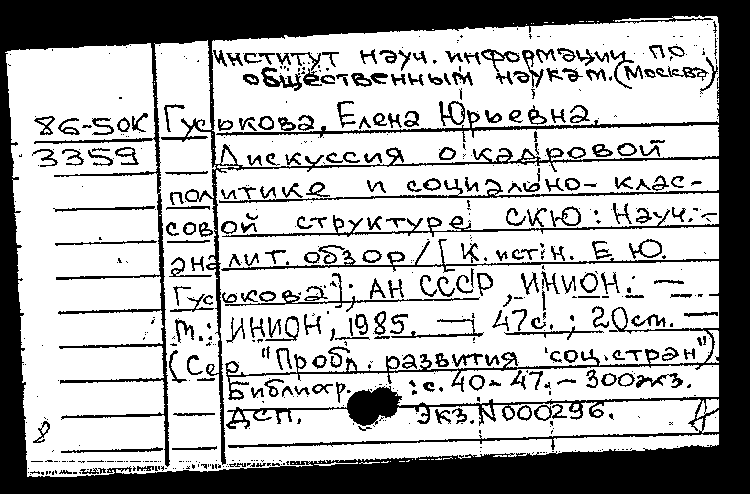 Институт науч. информации по
общественным наукам. (Москва)
86-50К Гуськова, Елена Юрьевна.
3359 Дискуссия о кадровой
политике и социально-клас-
совой структуре СКЮ: Науч.-
аналит. обзор / [К. ист. н. Е Ю.
Гуськова]; АН СССР, ИНИОН. —
М.: ИНИОН, 1985. — 47с.; 20см. —
(Сер. "Пробл. развития соц. стран").
Библиогр. : с. 40-47. — 300экз.
ДСП. Экз. N000296.
8